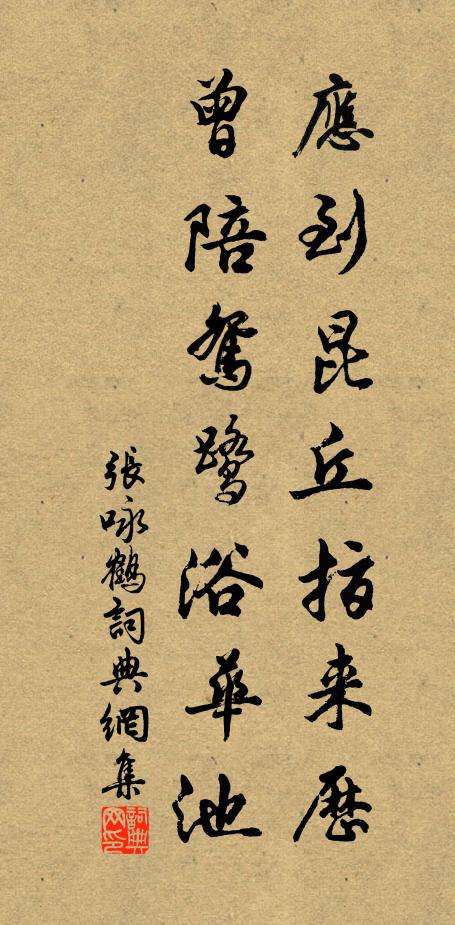 應到昆丘指来歷
曾陪鴛鷺浴華池
張咏鶴詞典網集
詞典網印